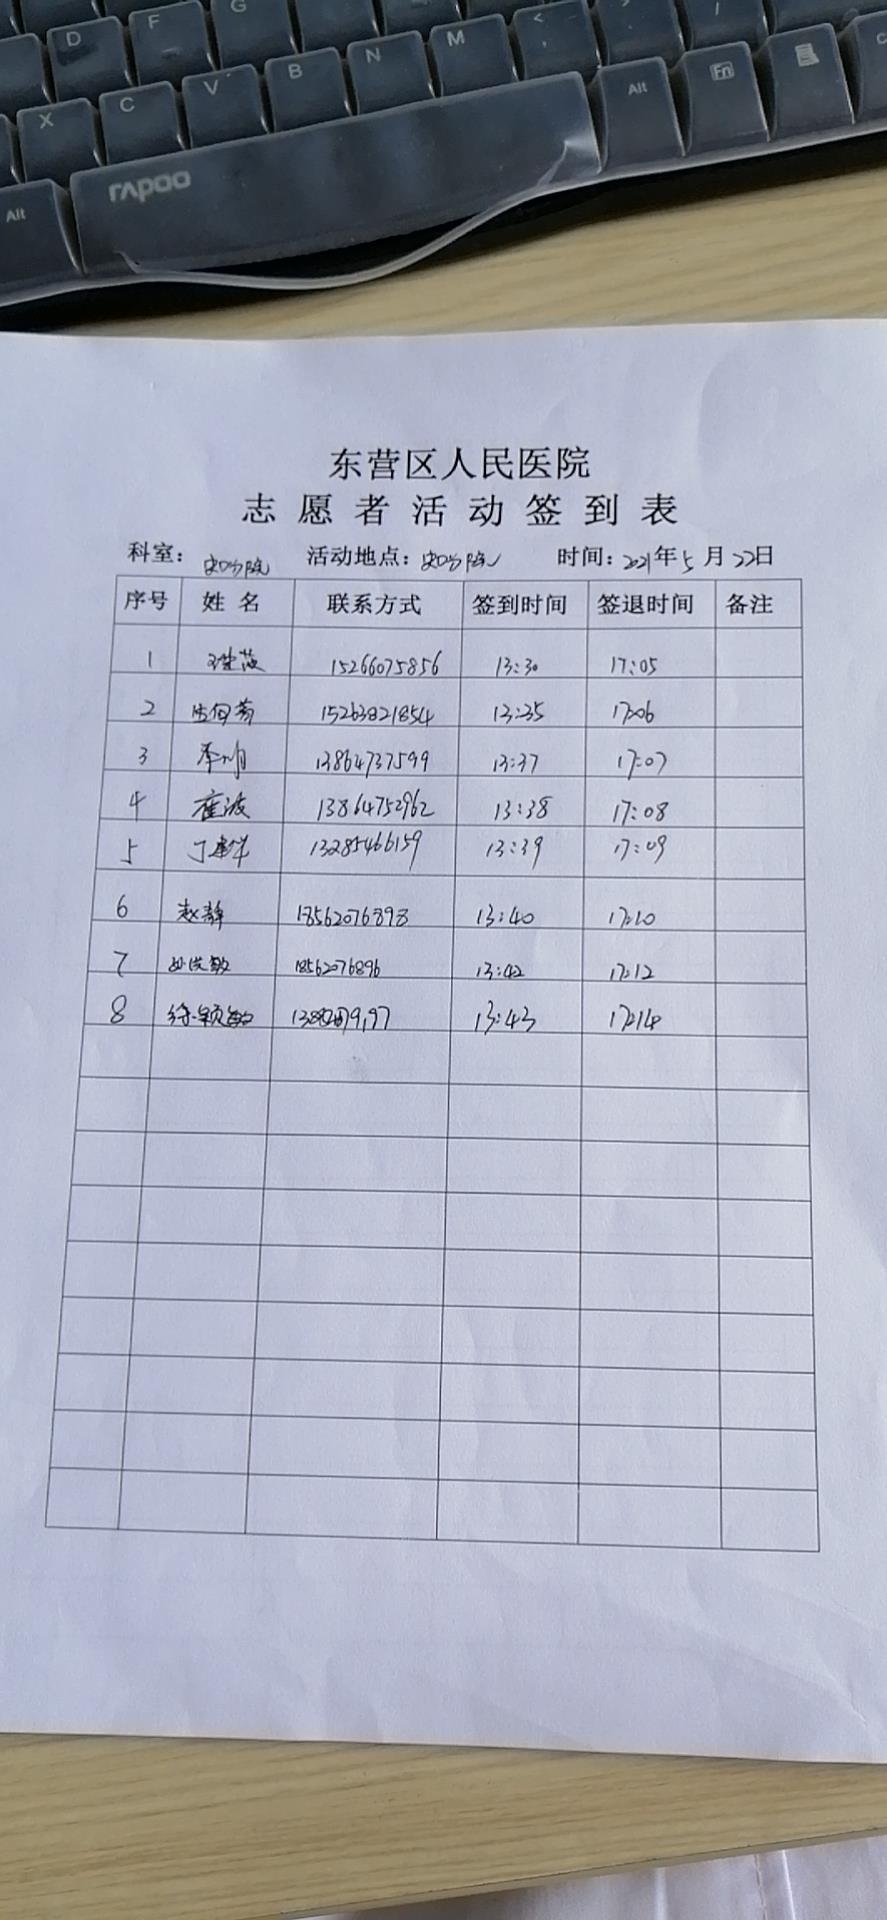 D F G
X C V B N M < > /
Alt rapoo Alt Fn
东营区人民医院
志愿者活动签到表
科室： 活动地点： 时间：2021年5月22日
序号 姓名 联系方式 签到时间 签退时间 备注
1 15266075856 13:30 17:05
2 15263821854 13:35 17:06
3 13864737599 13:37 17:07
4 崔波 13864752962 13:38 17:08
5 13285466159 13:39 17:09
6 赵静 18562076898 13:40 17:10
7 18562076896 13:42 17:12
8 徐颖 13:43 17:14